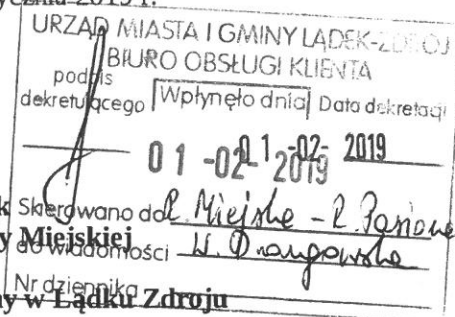 2019 r.
URZĄD MIASTA I GMINY LĄDEK-ZDRÓJ
BIURO OBSŁUGI KLIENTA
podpis
dekretującego Wpłynęło dnia Data dekretacji
01 -02- 2019 01 -02- 2019
Skierowano do R. Miejska - R.
y Miejskiej
do wiadomości W. Drongowska
Nr dziennika
ny w Lądku Zdroju